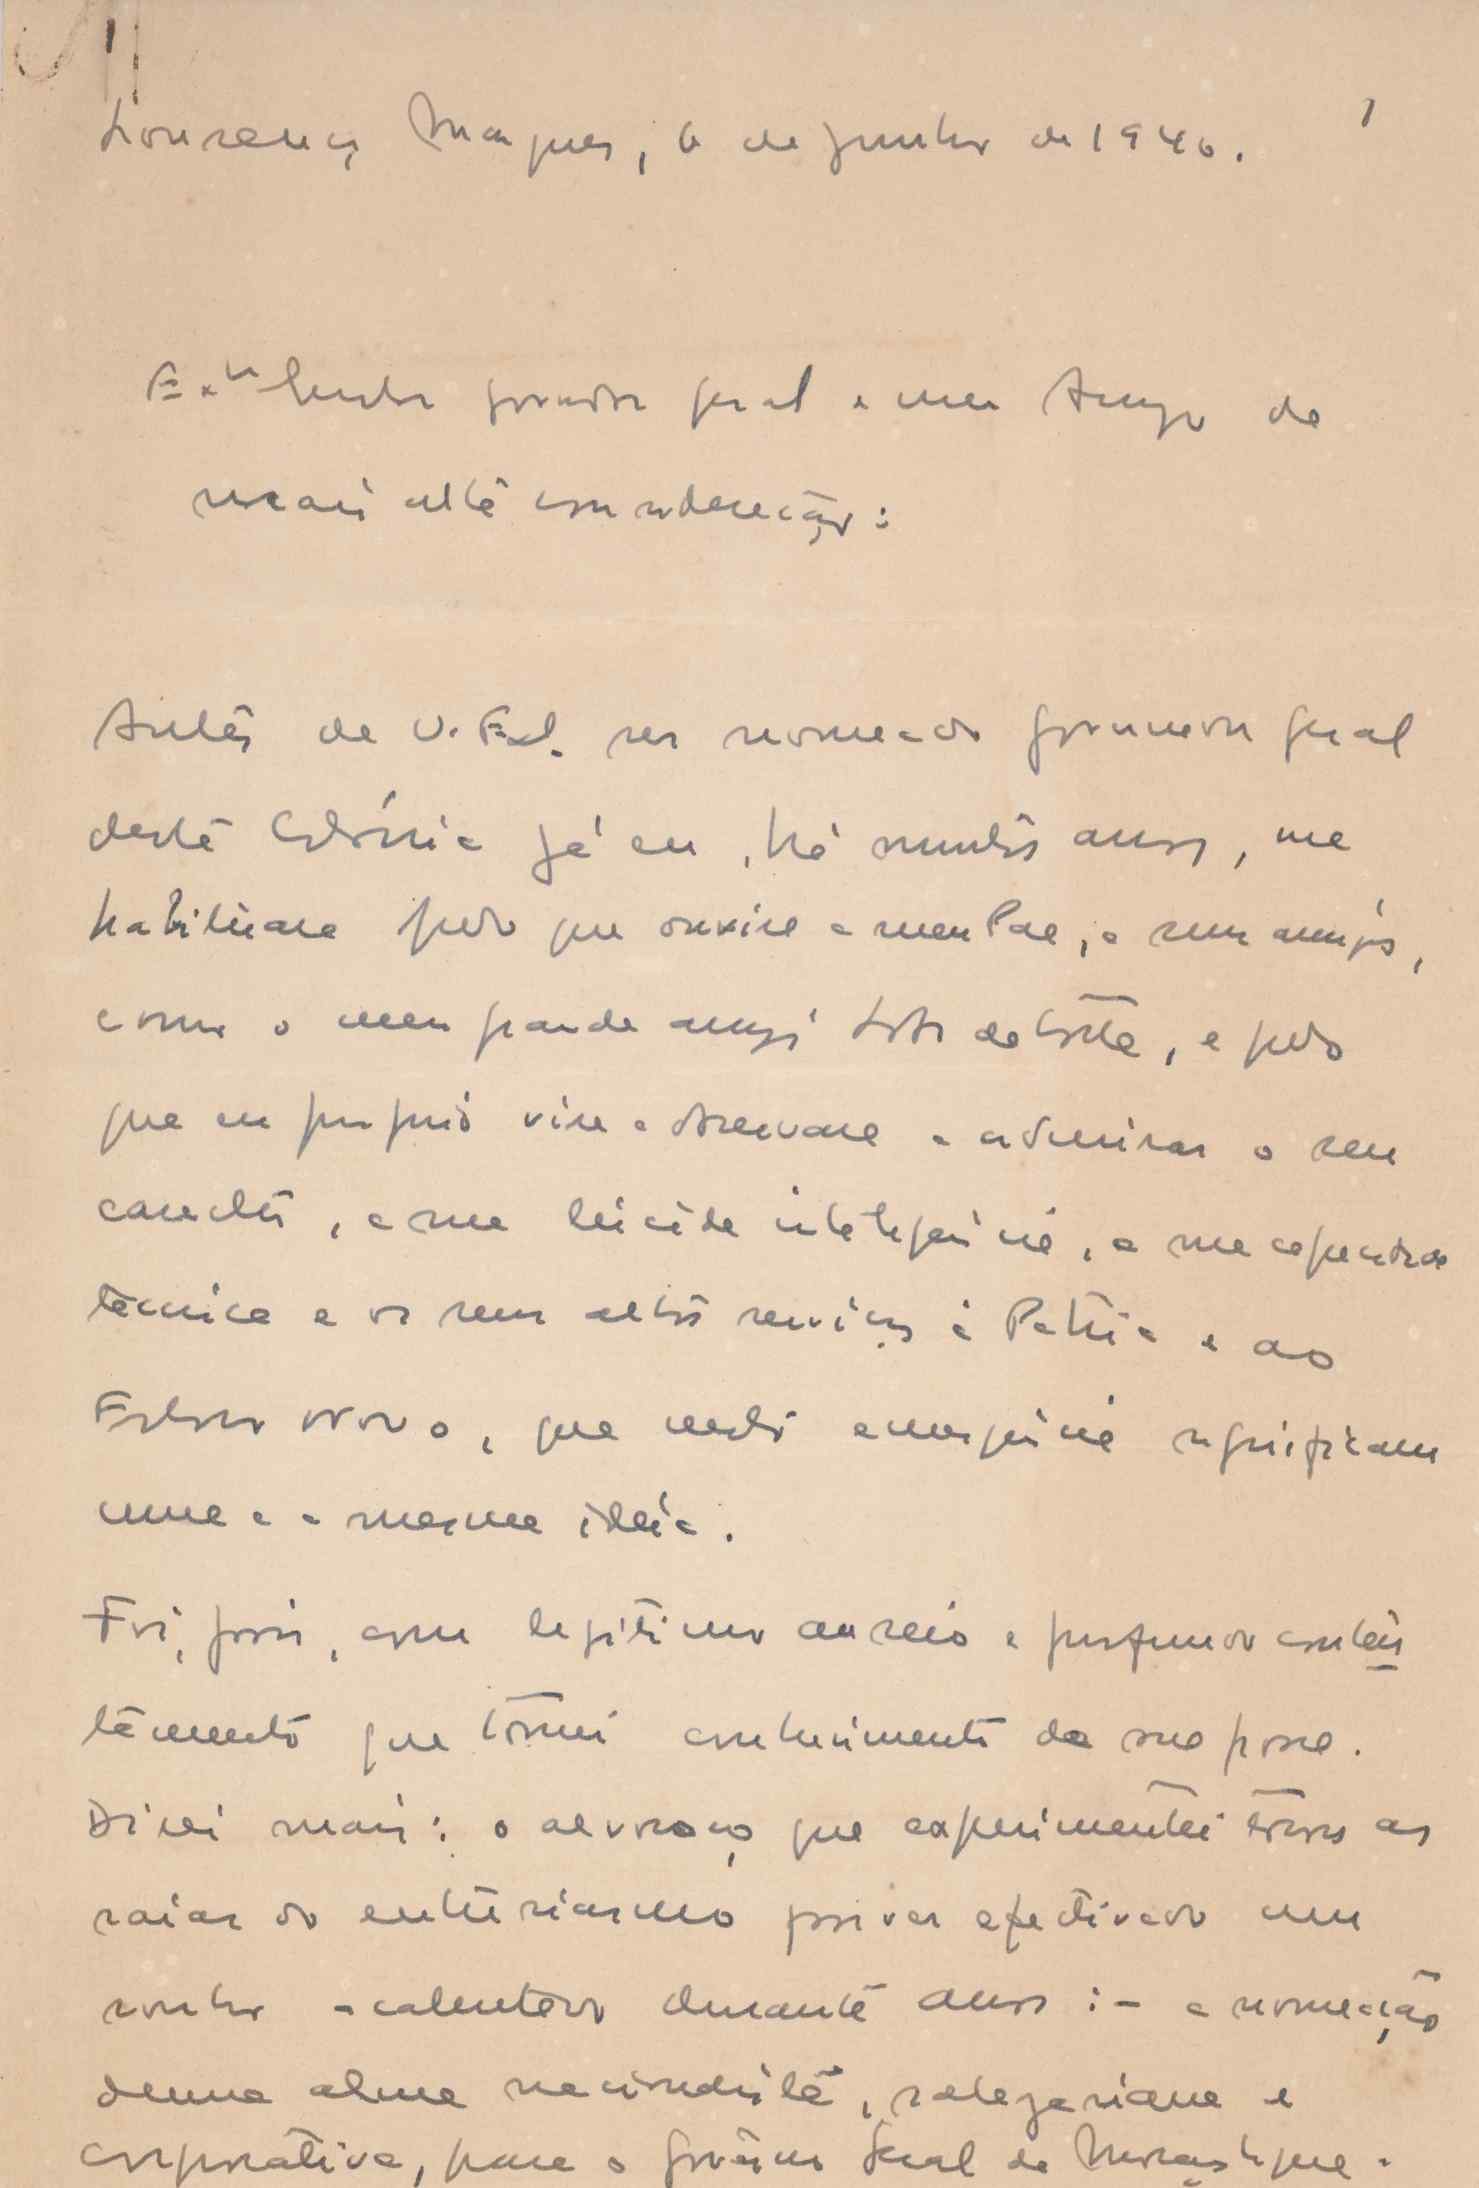 1
Lourenço Marques, 6 de Junho de 1940.
Exmo Senhor governador geral e meu Amigo da
mais alta consideração:
Antes de V. Excl. ser nomeado governador geral
desta Colónia já eu, há muitos anos, me
habituara pelo que ouvira a meu Pae, a seus amigos,
como o meu grande amigo da Costa, e pelo
que eu próprio vira a observar e admirar o seu
caracter, a sua lúcida inteligência, a sua capacidade
técnica e os seus altos serviços à Pátria e ao
Estado Novo, que nesta emergência significam
uma e a mesma ideia.
Foi, pois, com legitimo anseio e profundo conten
tamento que tomei conhecimento da sua posse.
Direi mais: o alvoroço que experimentei tocou as
raias do entusiasmo por ver efectivado um
sonho acalentado durante anos: - a nomeação
duma alma nacionalista, salazariana e
corporativa, para o Govêrno Geral de Moçambique.